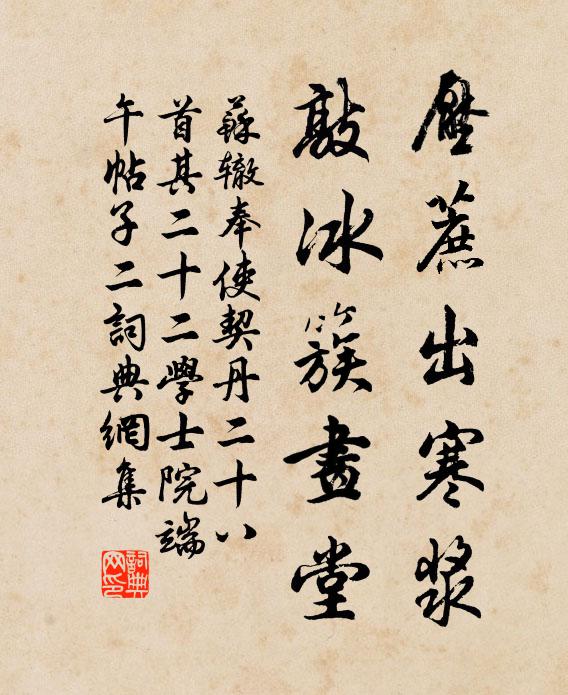 壓蔗出寒漿
敲冰簇畫堂
蘇辙奉使契丹二十八
首其二十二學士院端
午帖子二詞典網集
詞典网印